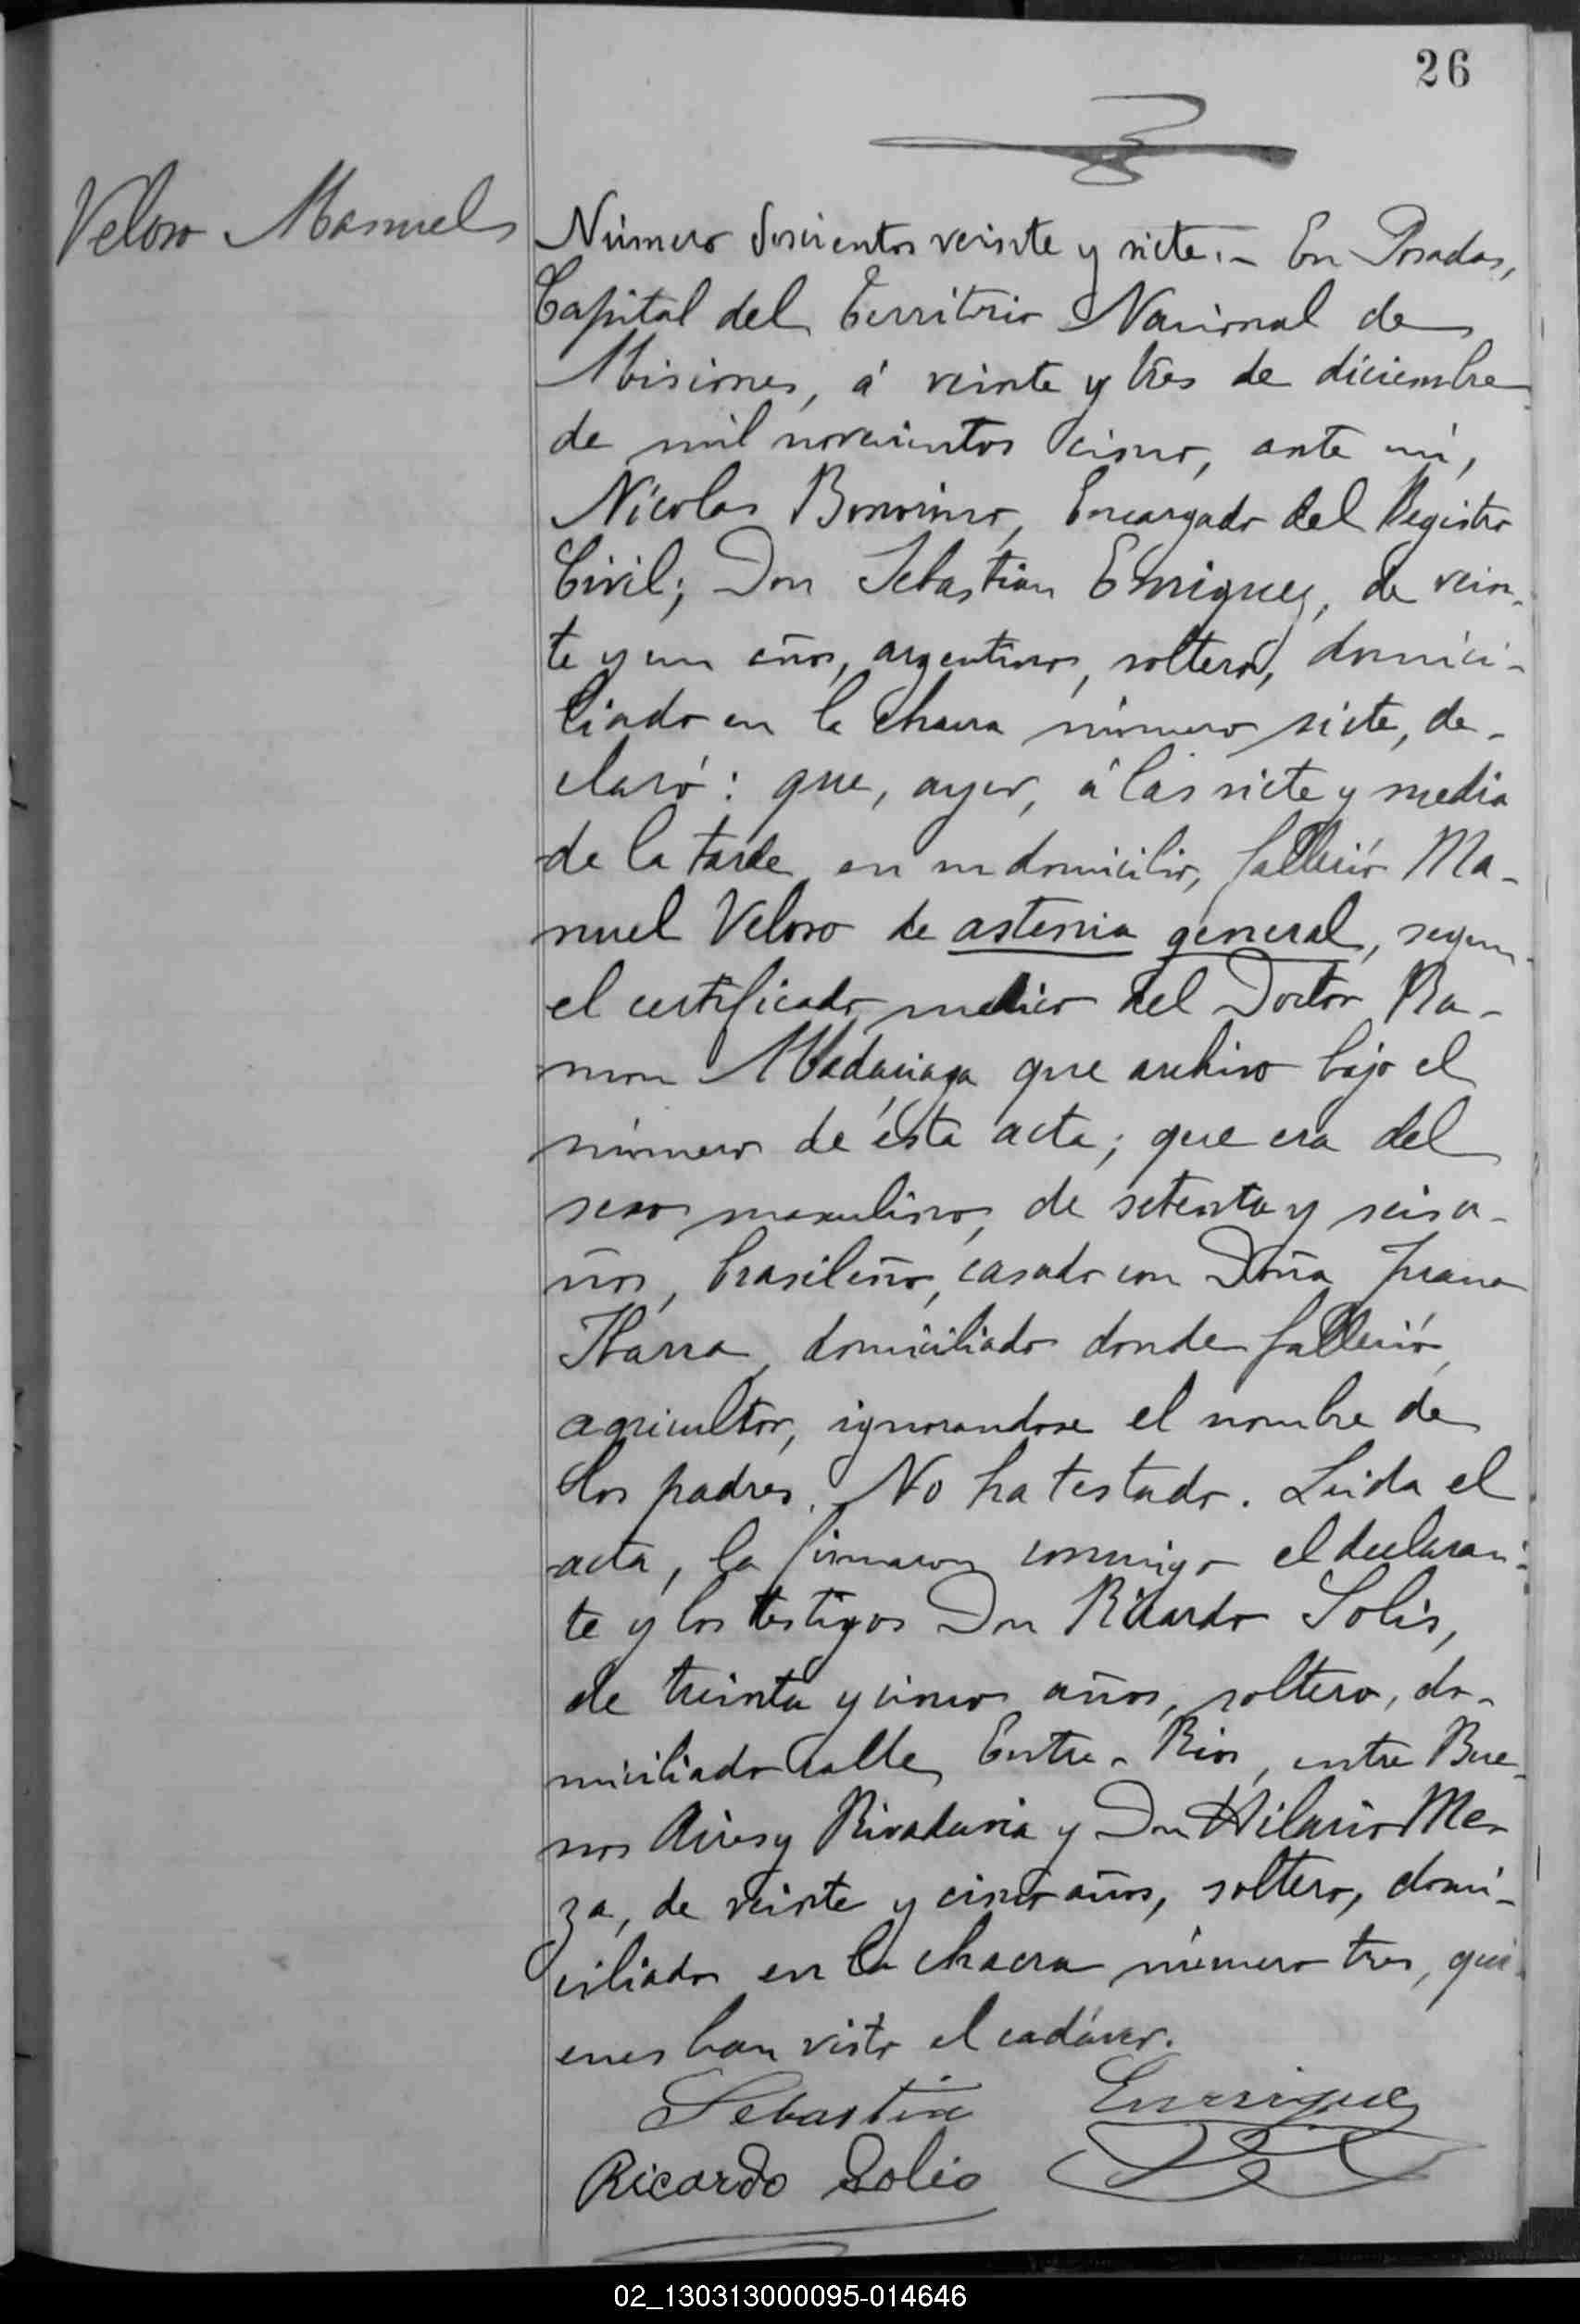 26
Veloso Manuel
Número doscientos veinte y siete.- En Posadas,
Capital del Territorio Nacional de
Misiones, á veinte y tres de diciembre
de mil novecientos cinco, ante mí,
Nícolas Bonorino, Encargado del Registro
Civil; Don Sebastian Enriquez, de vein-
te y un años, argentino, soltero, domici-
liado en la chacra número siete, de-
claró: que, ayer, á las siete y media
de la tarde en su domicilio, falleció Ma-
nuel Veloso de astenia general, segun
el certificado medico del Doctor Ra-
mon Madariaga que archivo bajo el
número de ésta acta; que era del
sexo masculino, de setenta y seis a-
ños, brasileño, casado con Doña Juana
Ibarra, domiciliado donde falleció,
agricultor, ignorandose el nombre de
los padres. No ha testado. Leida el
acta, la firmaron conmigo el declaran-
te y los testigos Don Ricardo Solis,
de treinta y cinco años, soltero, do-
miciliado calle Entre-Rios, entre Bue-
nos Aires y Rivadavia y Don Hilario Me-
za, de veinte y cinco años, soltero, domi-
ciliado en la chacra número tres, qui-
enes han visto el cadáver.
Sebastian Enrriquez
Ricardo Solis
02_130313000095-014646